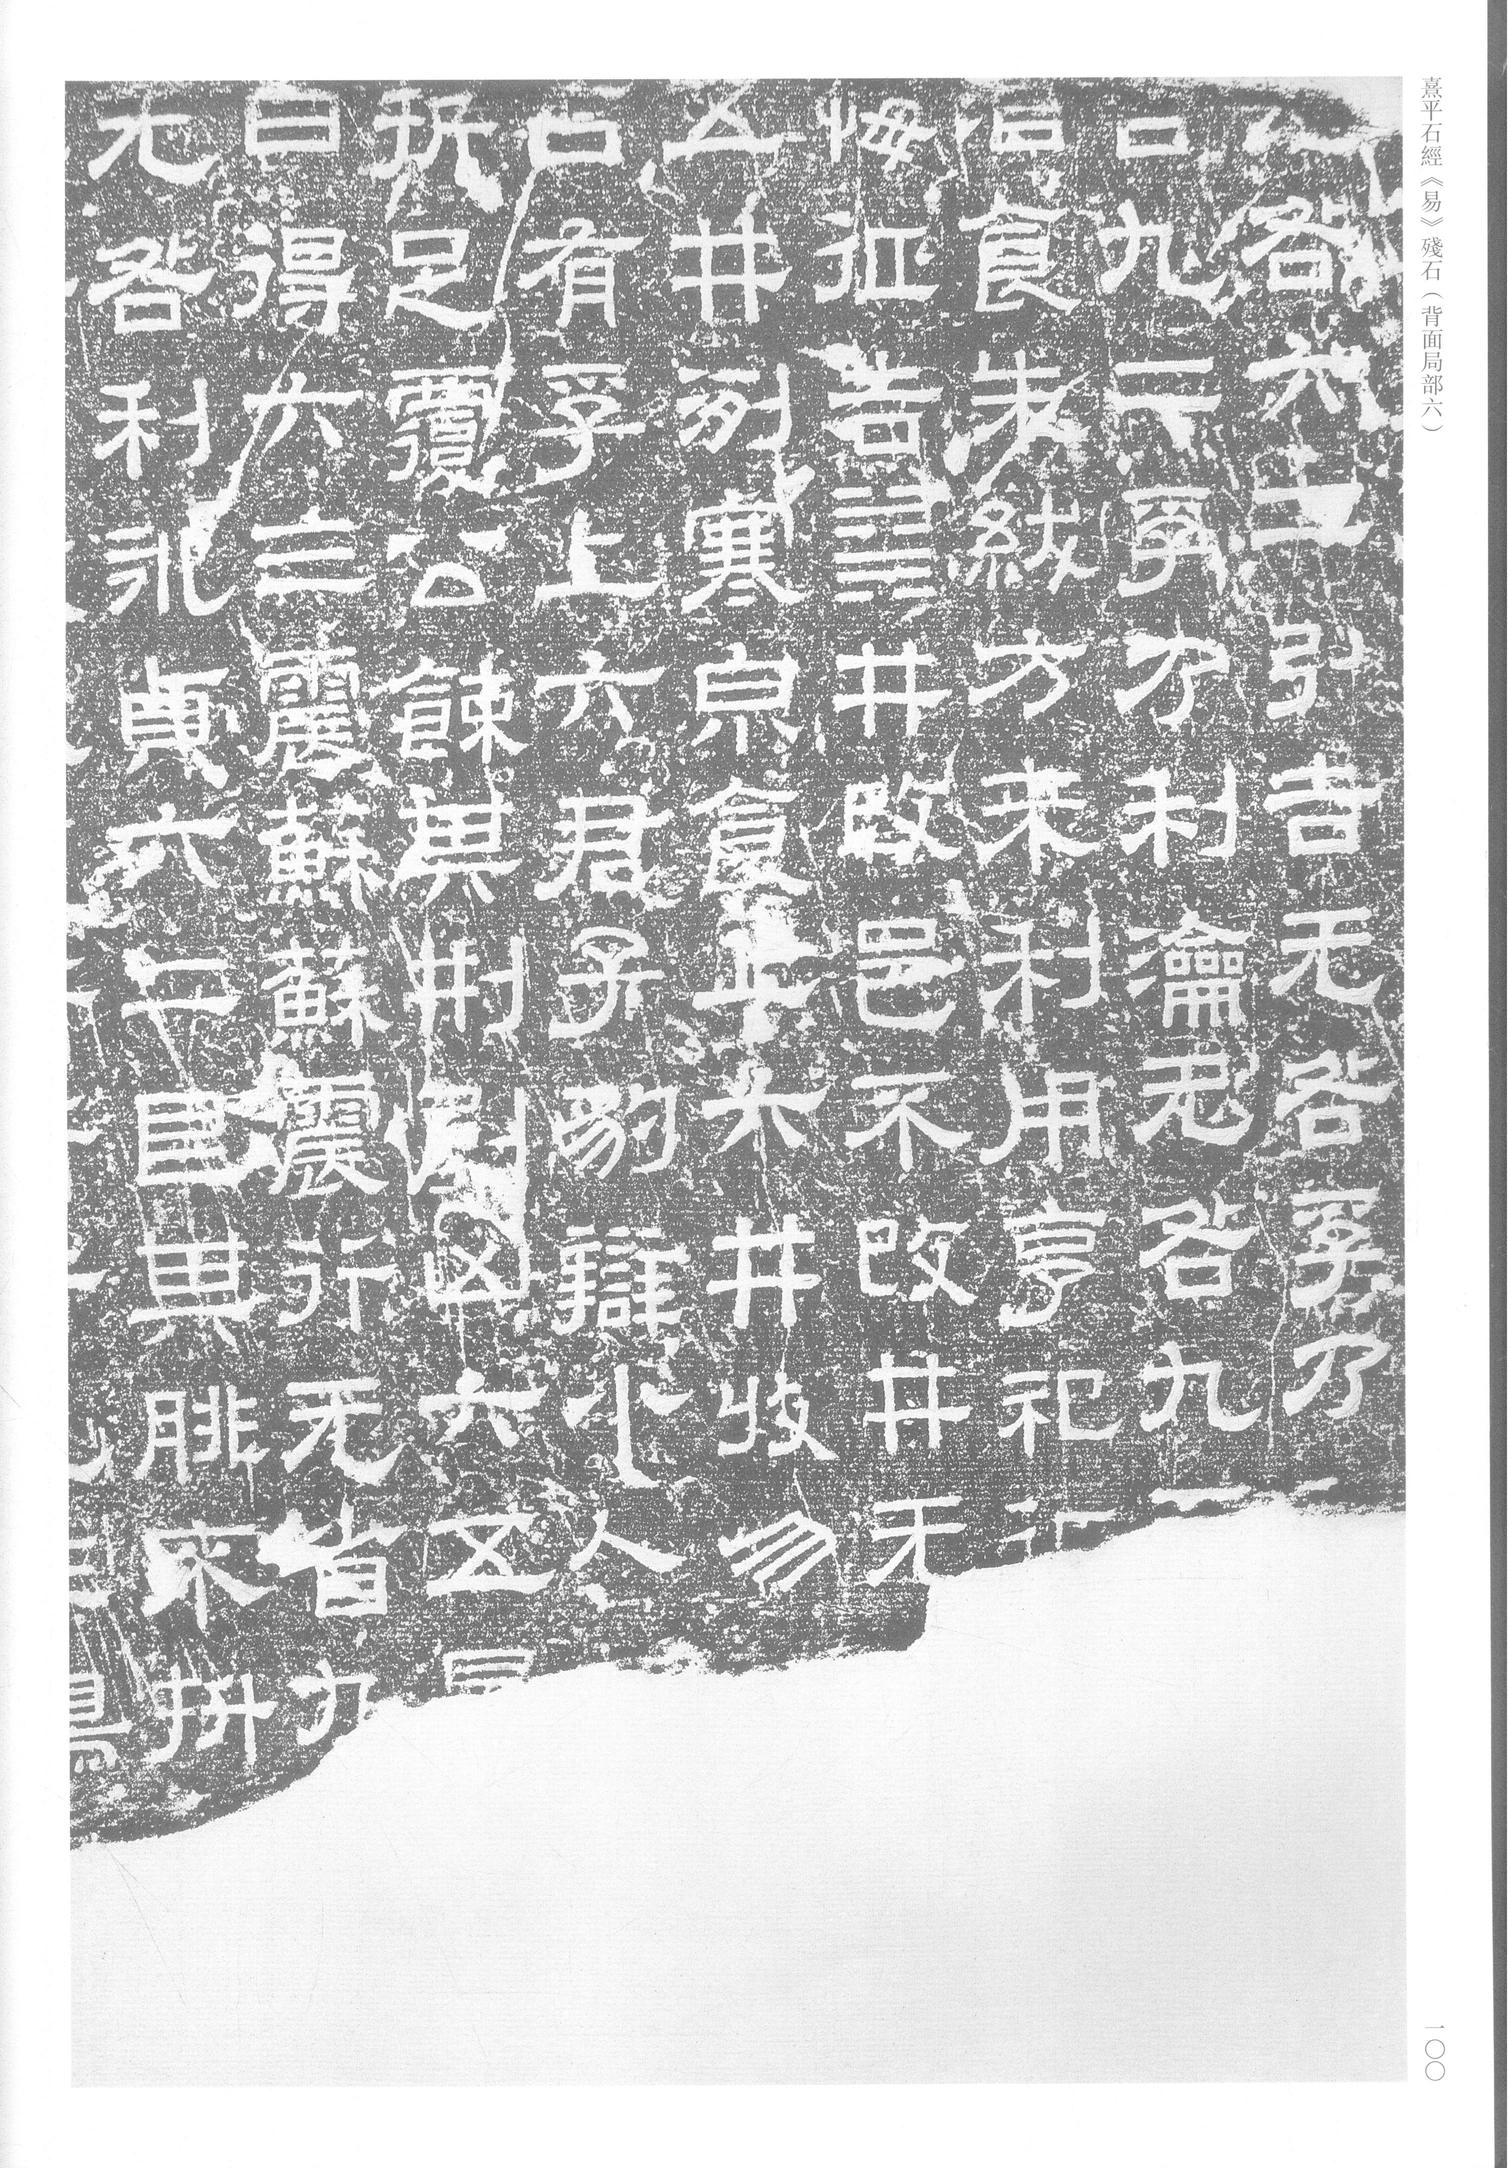 熹平石經《易》殘石（背面局部六）
咎六二引吉无咎孚乃
九二孚乃利禴无咎九
酒食朱紱方来利用亨祀
悔征吉䷯井改邑不改井无
五井冽寒泉食上六井收勿
占有孚上六君子豹辯小人
折足覆公餗其刑剭凶六五
曰得六三震蘇蘇震行无省九
无咎利永貞六二艮其腓不拼
一〇〇